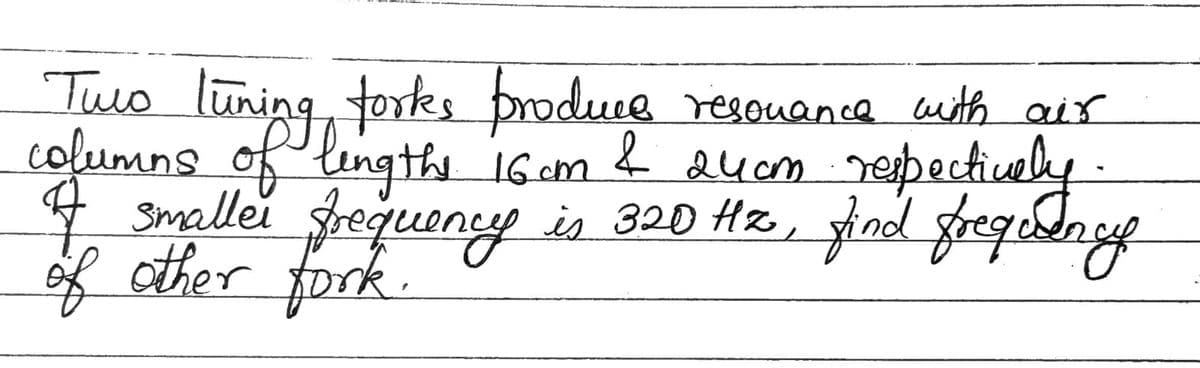 Two tuning forks produce resonance with air
columns of lengths 16 cm & 24 cm respectively.
If smaller frequency is 320 Hz, find frequency
of other fork.